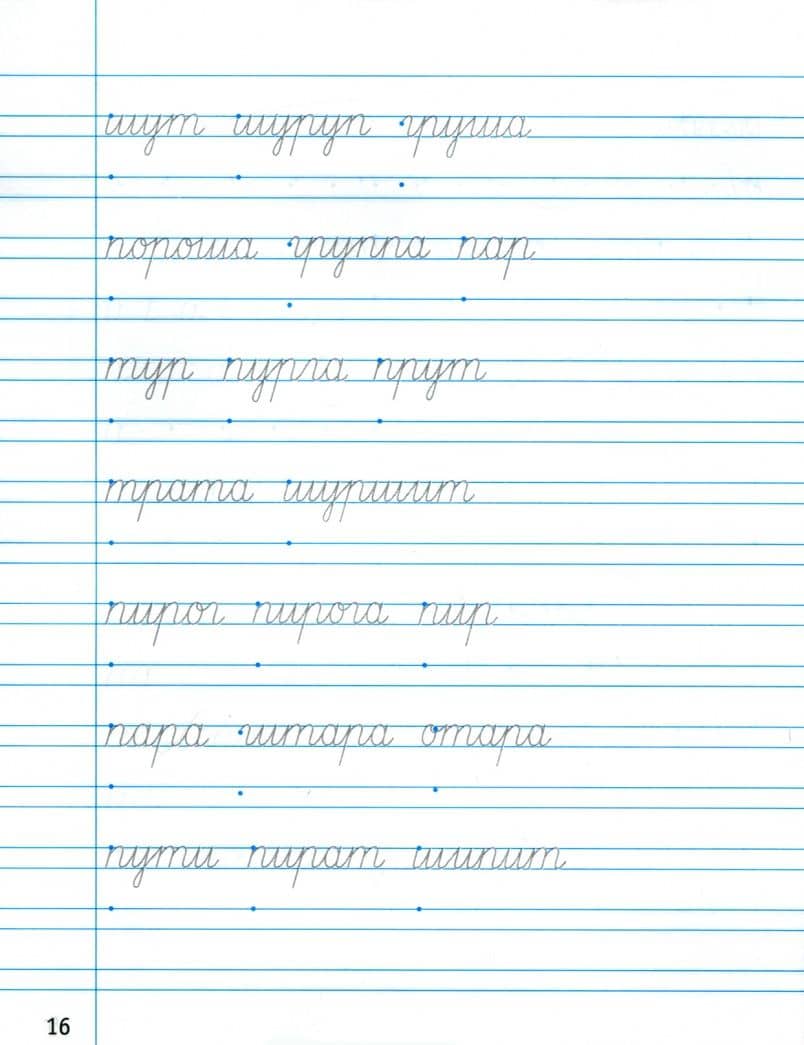 шут шуруп груша
пороша группа пар
тур пурга прут
трата шуршит
пирог пирога пир
пара гитара отара
пути пират шипит
16